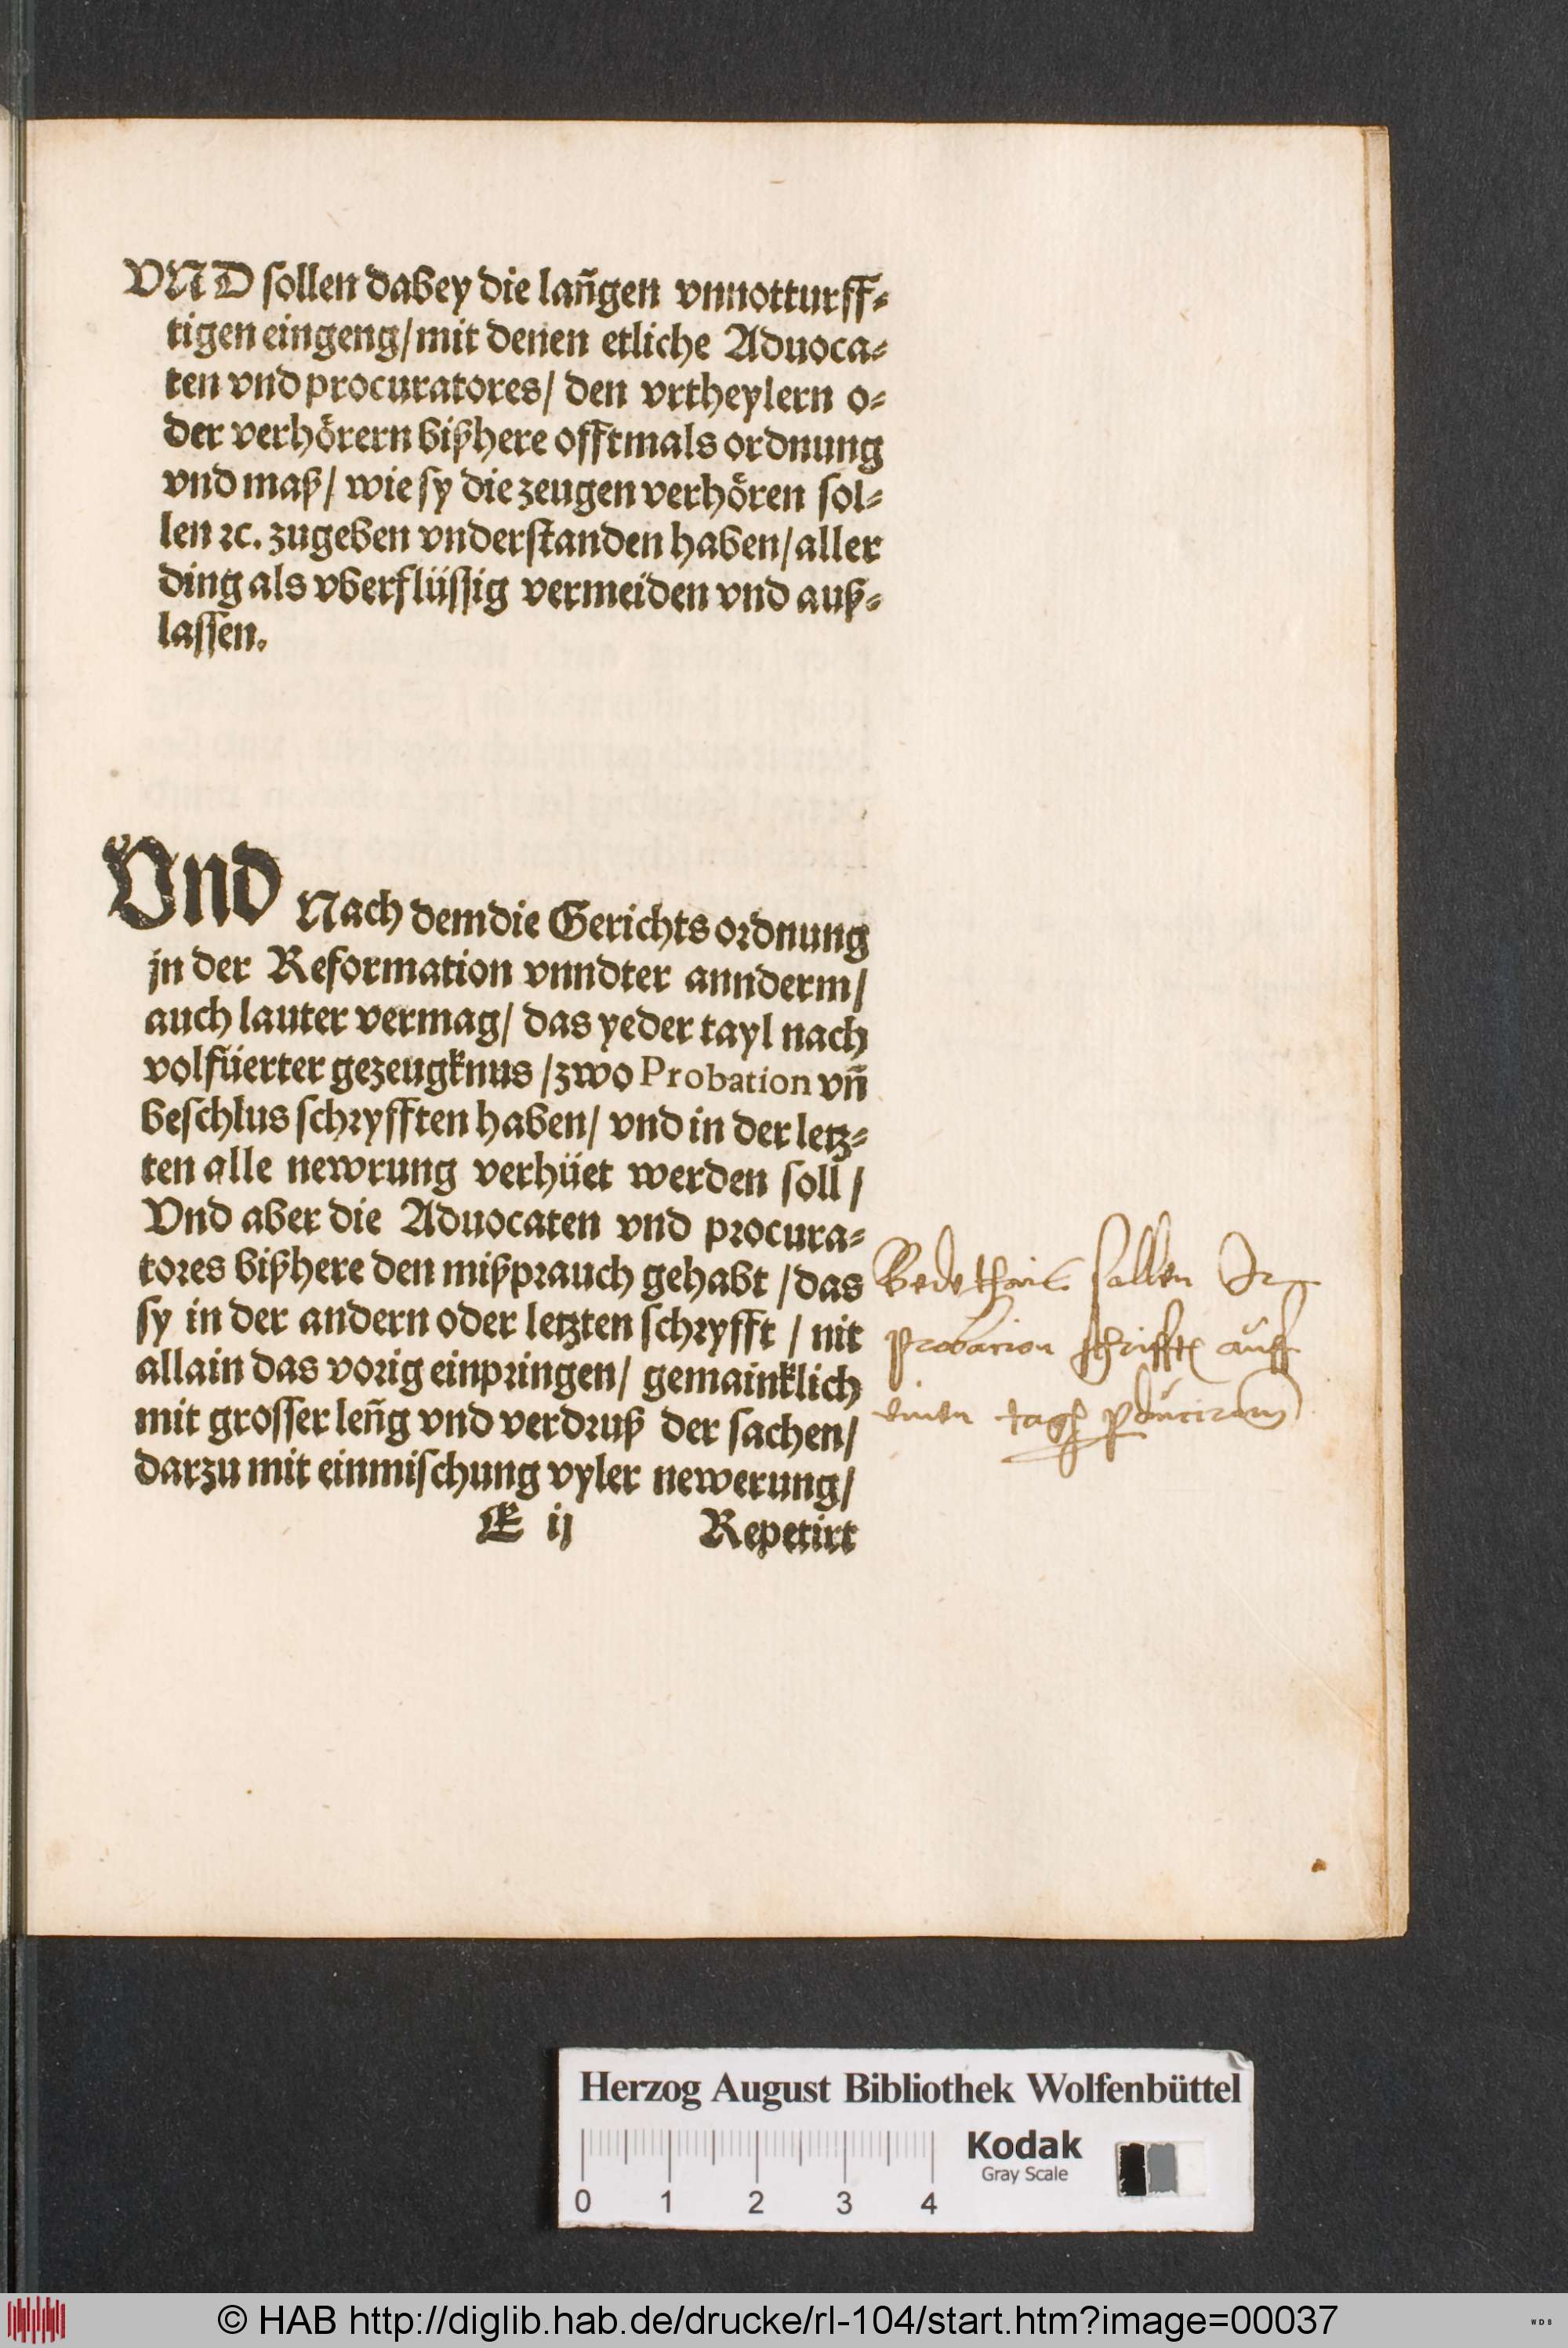 VND sollen dabey die lañgen vnnotturff-
tigen eingeng/mit denen etliche Aduoca-
ten vnd procuratores/ den vrtheylern o-
der verhörern bißhere offtmals ordnung
vnd maß/ wie sy die zeugen verhören sol-
len ꝛc. zugeben vnderstanden haben/aller
ding als vberflüssig vermeiden vnd auß-
lassen.
Vnd Nach dem die Gerichts ordnung
jn der Reformation vnndter annderm/
auch lauter vermag/ das yeder tayl nach
volfüerter gezeugknus /zwo Probation vñ
beschlus schryfften haben/ vnd in der letz-
ten alle newrung verhüet werden soll /
Vnd aber die Aduocaten vnd procura-
tores bißhere den mißprauch gehabt /das
sy in der andern oder letzten schryfft / nit
allain das vorig einpringen/ gemainklich
mit grosser leñg vnd verdruß der sachen/
darzu mit einmischung vyler newerung/
E ij Repetirt
Bede thail sollen Ir
probacion schrifft auff
einen tag
Herzog August Bibliothek Wolfenbüttel
Kodak
Gray Scale
0 1 2 3 4
© HAB http://diglib.hab.de/drucke/rl-104/start.htm?image=00037